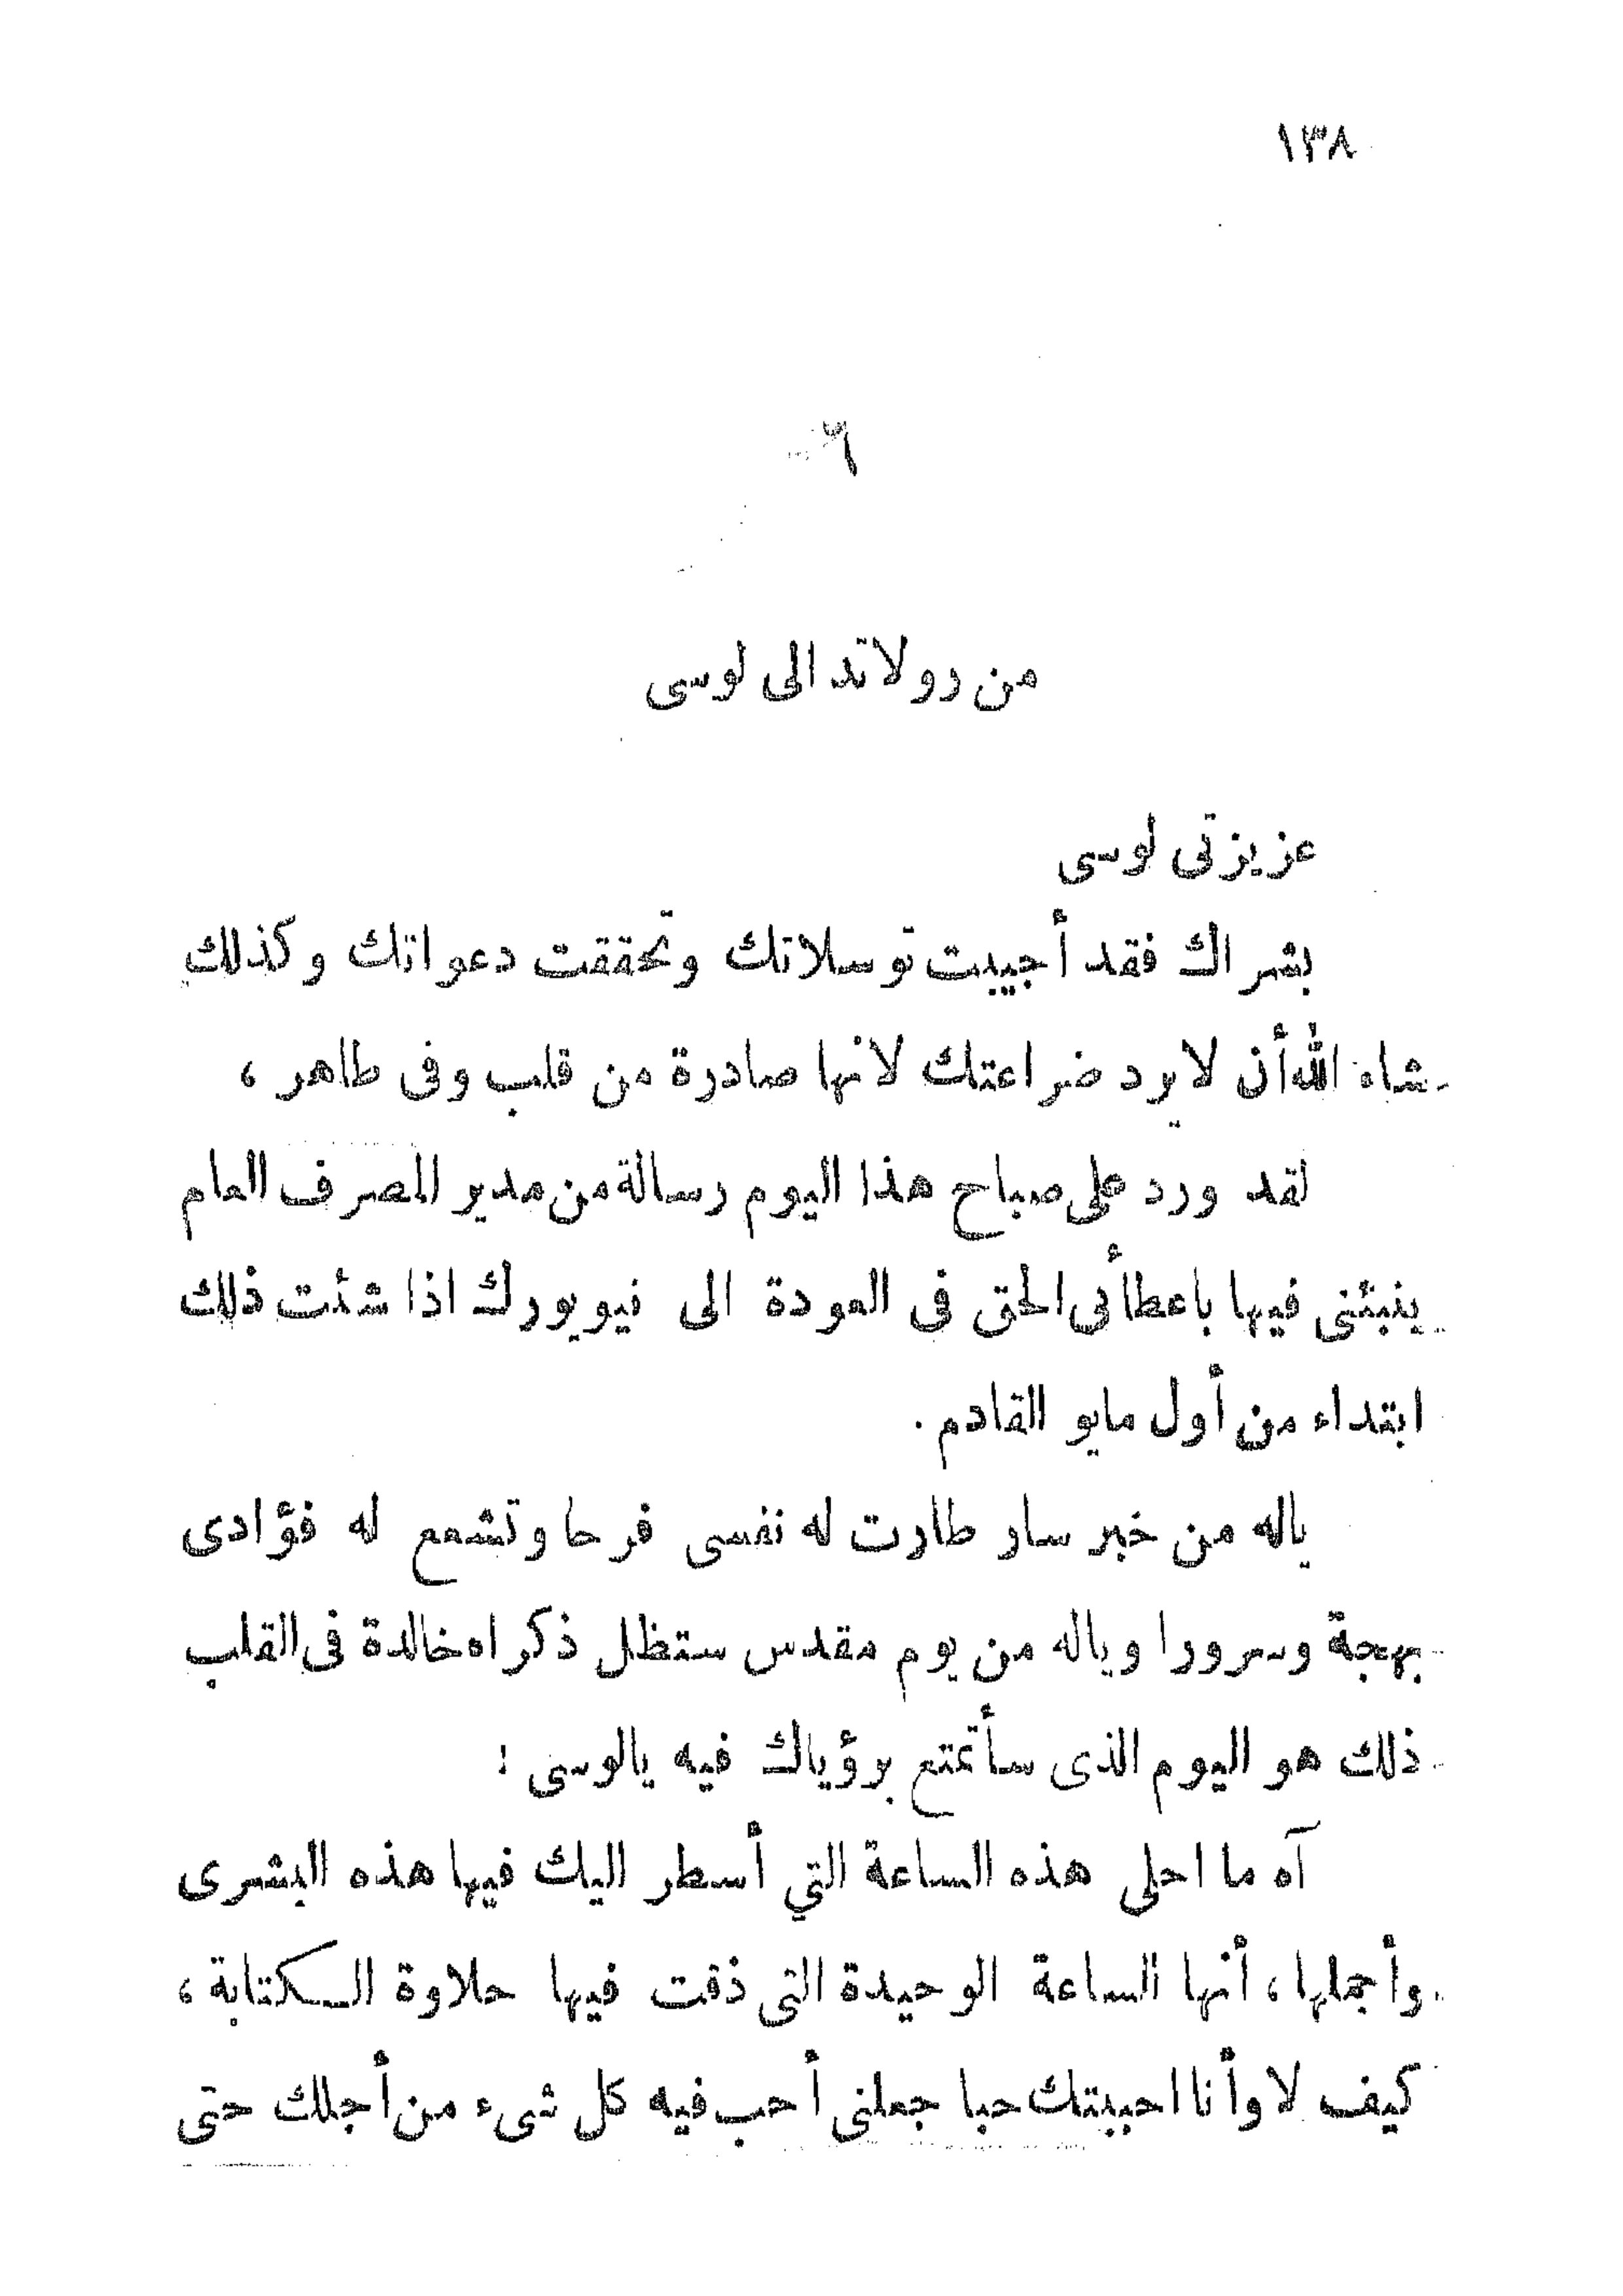 ١٣٨
٦
من رولاند الى لوسى
عزيزتى لوسى
بشراك فقد أجيبت توسلاتك وتحققت دعواتك وكذلك
شاء الله أن لا يرد ضراعتك لانها صادرة من قلب وفى طاهر ،
لقد ورد على صباح هذا اليوم رسالة من مدير المصرف العام
ينبئنى فيها باعطأئى الحق فى العودة الى نيويورك اذا شئت ذلك
ابتداء من أول مايو القادم .
ياله من خبر سار طارت له نفسى فرحا وتشعع له فؤادى
بهجة وسرورا وياله من يوم مقدس ستظل ذكراه خالدة فى القلب
ذلك هو اليوم الذى سأتمتع برؤياك فيه يالوسى :
آه ما احلى هذه الساعة التي أسطر اليك فيها هذه البشرى
وأجملها ، أنها الساعة الوحيدة التى ذقت فيها حلاوة الكتابة ،
كيف لا وأنا احببتك حبا جعلنى أحب فيه كل شىء من أجلك حتى